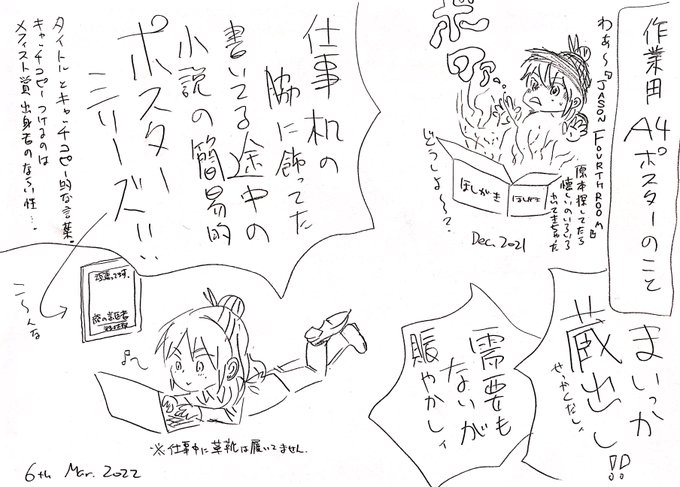 作業用
A4ポスターのこと
わぁ〜
JASON FOURTHROOM
原本探してたら
懐しいのいろいろ
でてきちゃった
どうしよ〜?
ほしがき
ほしがき
Dec. 2021
まいっか
蔵出し!!
せっかくだし。
需要も
ないが
賑やかしィ
仕事机の
脇に飾ってた
書いてる途中の
小説の簡易的
ポスター
シリーズ!!
タイトルとキャッチコピー的な言葉。
キャッチコピーつけるのは
メフィスト賞出身者のならい性…。
こ〜んな
※仕事中に革靴は履いてません。
6th Mar. 2022